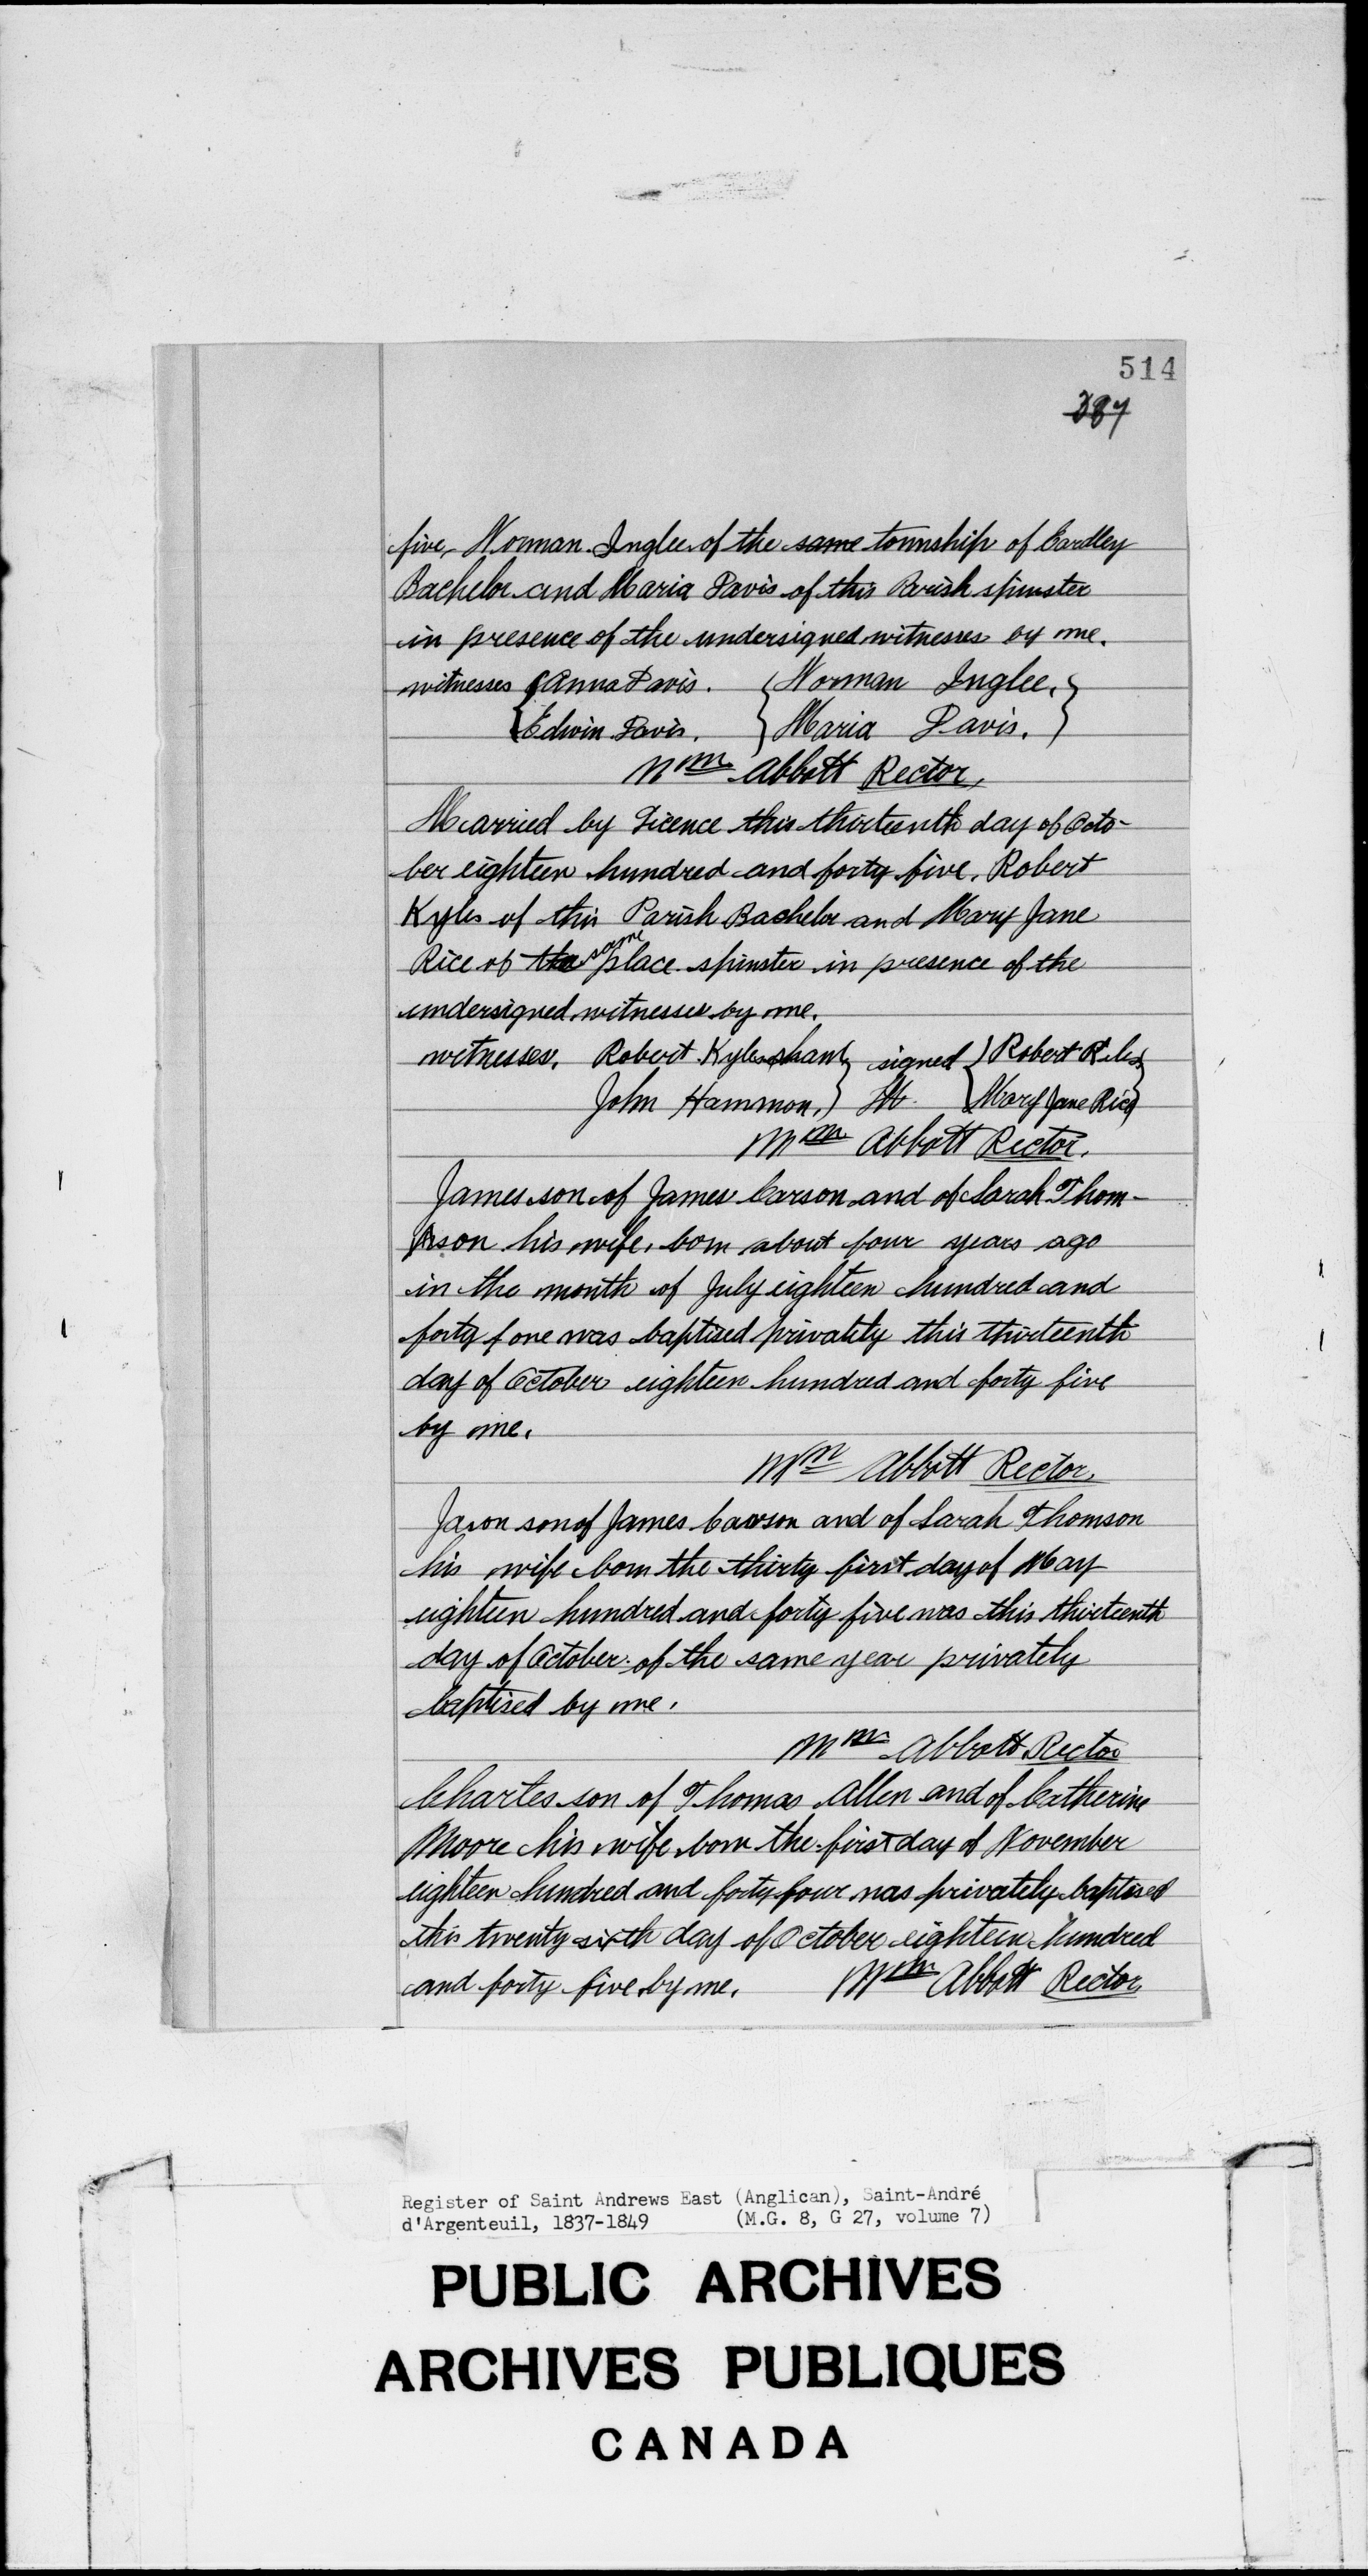 514
387
five, Norman Inglee of the same township of Eardley
Bachelor and Maria Davis of this Parish spinster
in presence of the undersigned witnesses by me.
witnesses { Anna Davis. { Norman Inglee, }
{ Edwin Davis. } Maria Davis. }
Wm Abbott Rector,
Married by Licence this thirteenth day of Octo-
ber eighteen hundred and forty five, Robert
Kyles of this Parish Bachelor and Mary Jane
Rice of the same place spinster in presence of the
undersigned witnesses by me.
witnesses. Robert Kyles } signed { Robert }
John Hammon, } { Mary Jane Rice }
Wm Abbott Rector.
James son of James Carson and of Sarah Thom-
son his wife, born about four years ago
in the month of July eighteen hundred and
forty one was baptised privately this thirteenth
day of October eighteen hundred and forty five
by me.
Wm Abbott Rector.
Jason son of James Carson and of Sarah Thomson
his wife born the thirty first day of May
eighteen hundred and forty five was this thirteenth
day of October of the same year privately
baptised by me.
Wm Abbott Rector
Charles son of Thomas Allen and of Catherine
Moore his wife born the first day of November
eighteen hundred and forty four was privately baptised
this twenty sixth day of October eighteen hundred
and forty five by me. Wm Abbott Rector
Register of Saint Andrews East (Anglican), Saint-André
d'Argenteuil, 1837-1849 (M.G. 8, G 27, volume 7)
PUBLIC ARCHIVES
ARCHIVES PUBLIQUES
CANADA